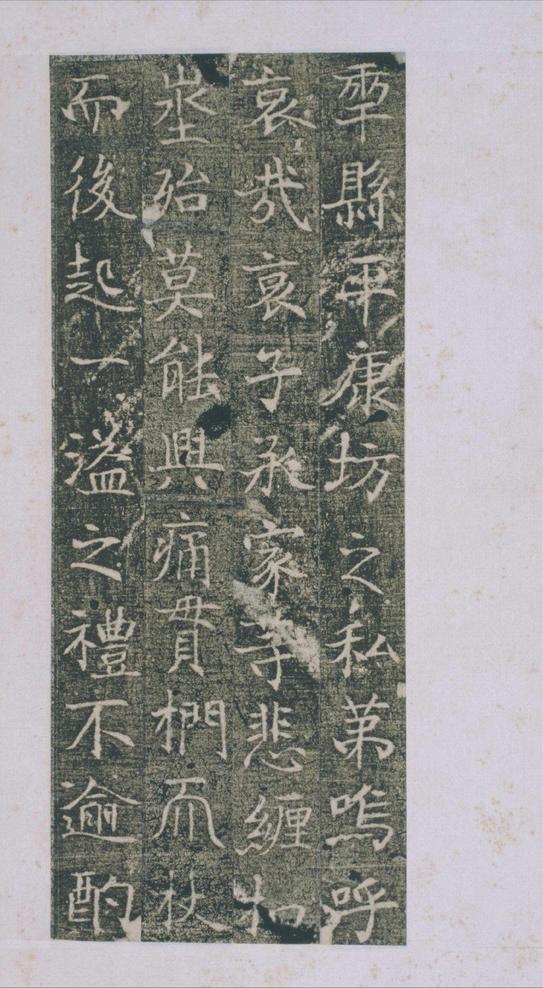 𠡦縣平康坊之私第嗚呼
哀哉哀子承家等悲纏扣
埊殆莫能興痛貫捫𠀑杖
而後起一溢之禮不逾酌